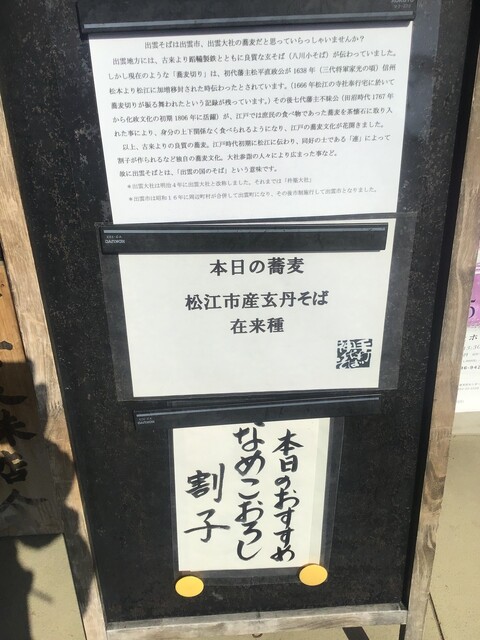 出雲そばは出雲市、出雲大社の蕎麦だと思っていらっしゃいませんか？
出雲地方には、古来より鈩輪製鉄とともに良質な玄そば（八川小そば）が伝わっていました。
しかし現在のような「蕎麦切り」は、初代藩主松平直政公が 1638 年（三代将軍家光の頃）信州
松本より松江に加増移封された時伝わったとされています。（1666 年松江の寺社奉行宅に於いて
蕎麦切りが振る舞われたという記録が残っています。）その後七代藩主不昧公（田沼時代 1767 年
から化政文化の初期 1806 年に活躍）が、江戸では庶民の食べ物であった蕎麦を茶懐石に取り入
れた事により、身分の上下関係なく食べられるようになり、江戸の蕎麦文化が花開きました。
以上、古来よりの良質の蕎麦、江戸時代初期に松江に伝わり、同好の士である「連」によって
割子が作られるなど独自の蕎麦文化、大社参詣の人々により広まった事など。
故に出雲そばとは、「出雲の国のそば」という意味です。
＊出雲大社は明治４年に出雲大社と改称しました。それまでは「杵築大社」
＊出雲市は昭和１６年に周辺町村が合併して出雲町になり、その後市制施行して出雲市となりました。
本日の蕎麦
松江市産玄丹そば
在来種
本日のおすすめ
なめこおろし
割子